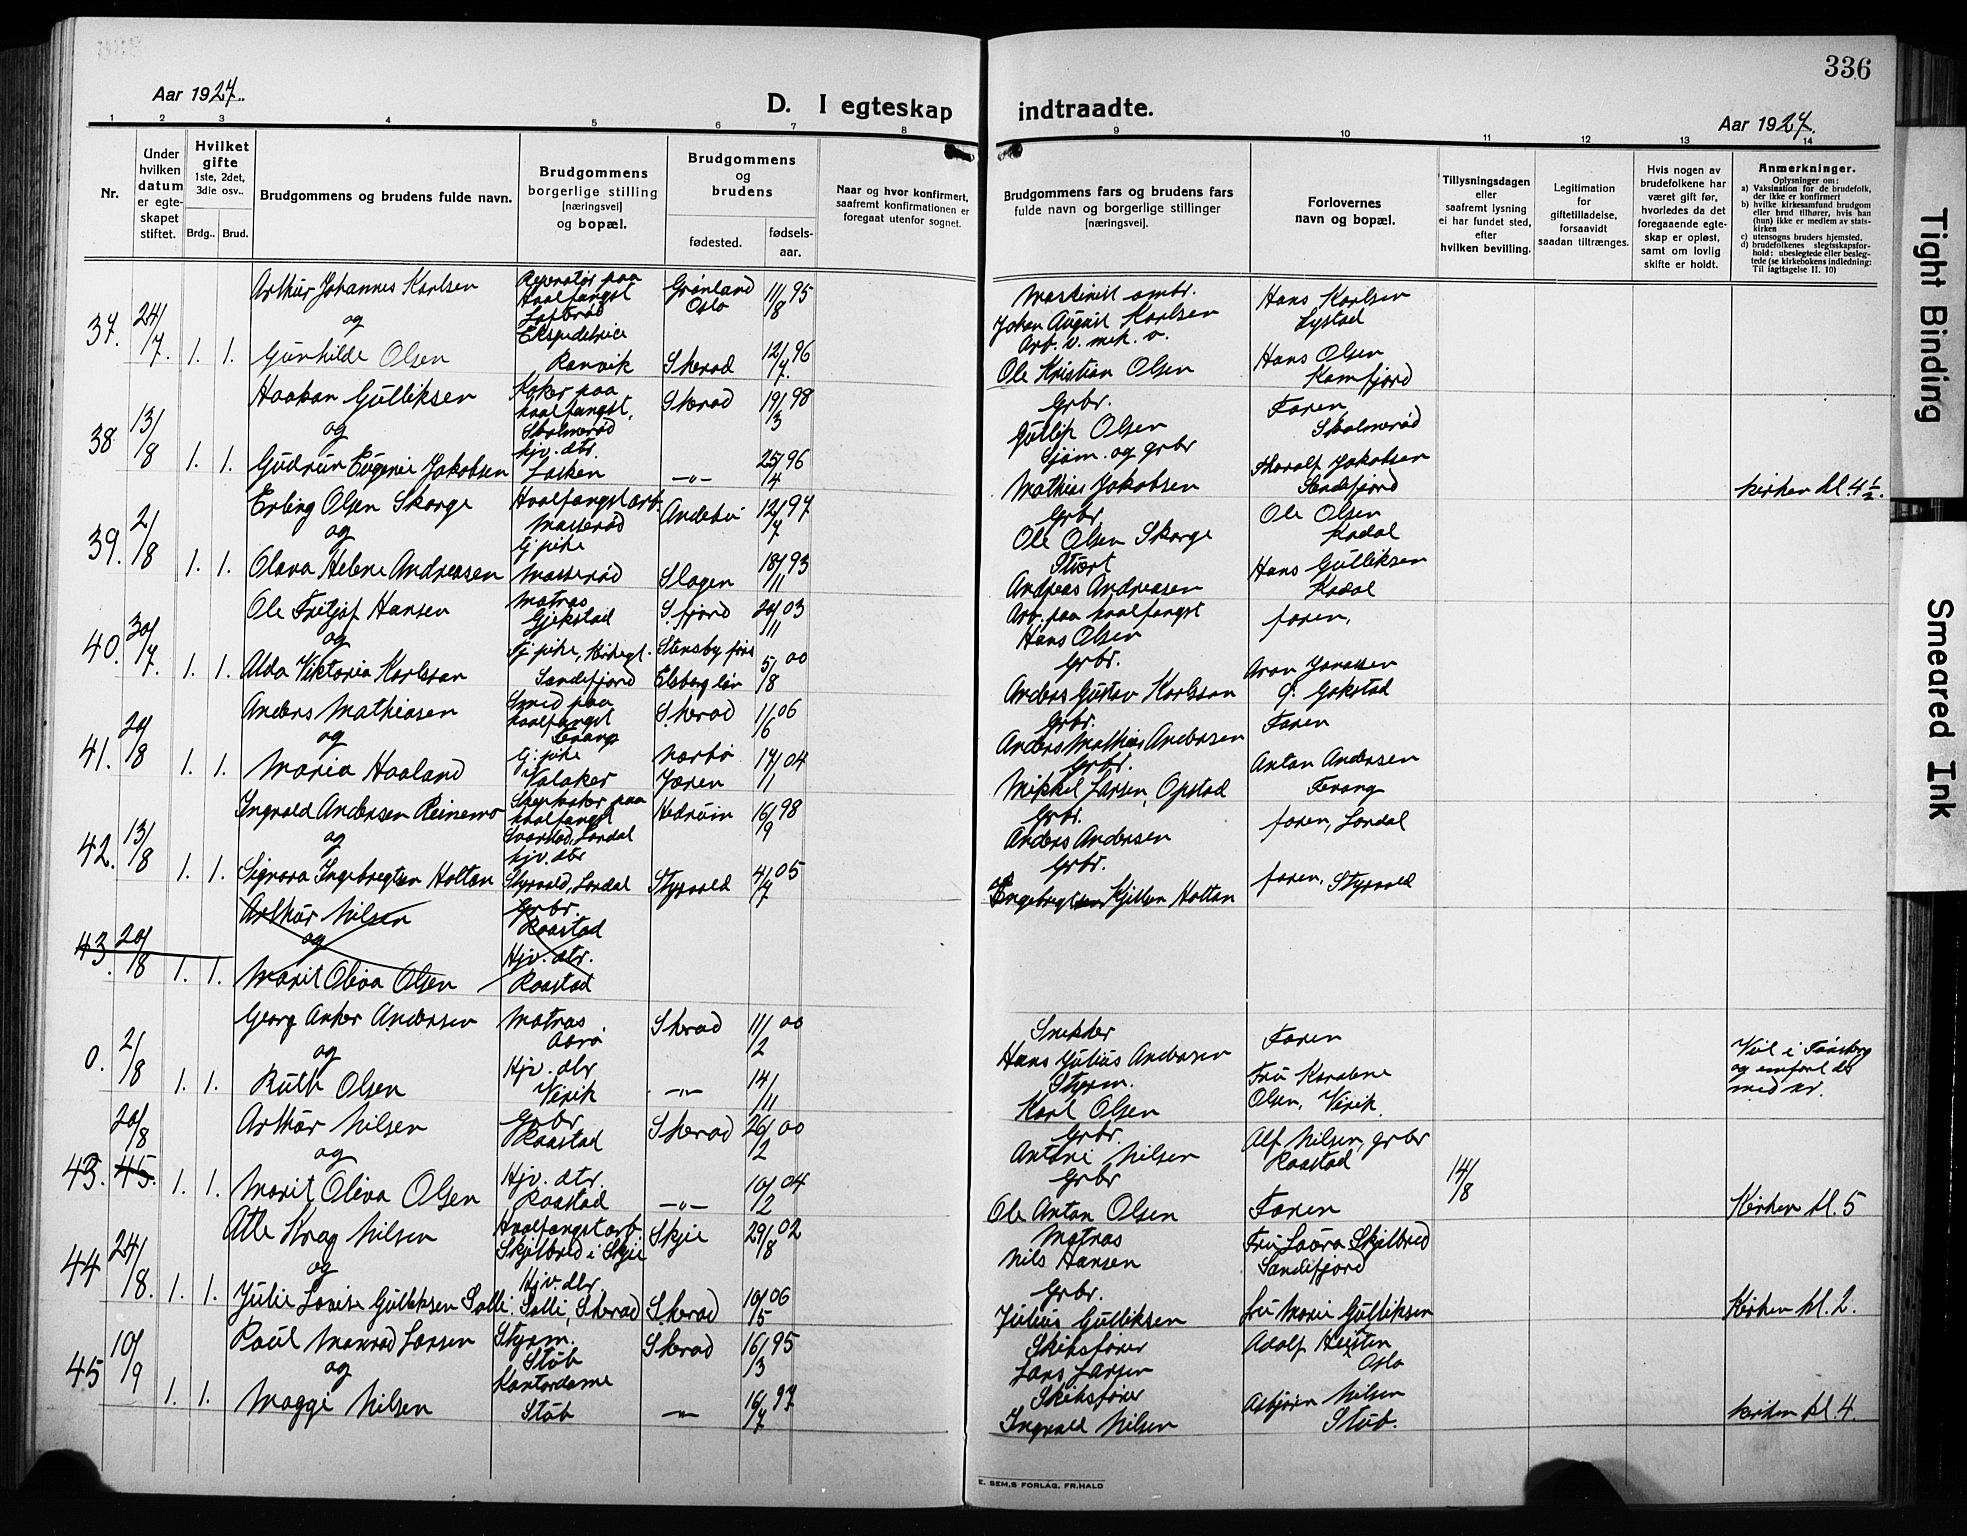 336
Aar 1927.
D. I egteskap indtraadte.
Aar 1927.
1 2 3 4 5 6 7 8 9 10 11 12 13 14
Nr.
Under hvilken datum er egte-skapet stiftet.
Hvilket gifte 1ste, 2det, 3die osv..
Brdg.. Brud.
Brudgommens og brudens fulde navn.
Brudgommens borgerlige stilling (næringsvei) og bopæl.
Brudgommens og brudens
fødested. fødsels-aar.
Naar og hvor konfirmert, saafremt konfirmationen er foregaat utenfor sognet.
Brudgommens fars og brudens fars fulde navn og borgerlige stillinger (næringsvei).
Forlovernes navn og bopæl.
Tillysningsdagen eller saafremt lysning ei har fundet sted, efter hvilken bevilling.
Legitimation for giftetilladelse, forsaavidt saadan tiltrænges.
Hvis nogen av brudefolkene har været gift før, hvorledes da det foregaaende egte-skap er opløst, samt om lovlig skifte er holdt.
Anmerkninger.
Oplysninger om:
a) Vaksination for de brudefolk, der ikke er konfirmert
b) hvilke kirkesamfund brudgom eller brud tilhører, hvis han (hun) ikke er medlem av stats-kirken
c) utensogns bruders hjemsted.
d) brudefolkenes slegtsskapsfor-hold: ubeslegtede eller besleg-tede (se kirkebokens indledning: Til iagttagelse II. 10)
37. 24/7. 1. 1.
Arthur Johannes Karlsen
og
Gunhilde Olsen
Reperatør paa
hvalfangst
Ranvik
Grønland
Oslo
11/8 95
Skerad
12/7. 96
Maskinist
Johan August Karlsen
Arb. v. mek. v.
Ole Kristian Olsen
Hans Karlsen
Lystad
Hans Olsen
Kamfjord
38 13/8 1. 1.
Haakan Gulliksen
og
Gudrun Eugenie Jakobsen
Koker paa
hvalfangst,
Skolmerød
hjv. dtr.
Skerad
19/3 98
—"—
25/4 96
Grbr.
Gullip Olsen
Sjøm. og grbr
Mathias Jakobsen
Faren
Skolmerød
Tharalf Jakobsen
Sandefjord
Kirken kl. 4 1/2.
39. 2/8 1. 1.
Erling Olsen Skorge
og
Olava Helene Andreasen
Hvalfangstarb.
Masserød
Tj. pike
Masserød
Andebu
12/7 97
Slagen
18/11 93
Grbr
Ole Olsen Skorge
Andreas Andreasen
Ole Olsen
Kodal
Hans Gulliksen
Kodal
40. 30/7. 1. 1.
Ole Fritjof Hansen
og
Alda Viktoria Karlsson
Matros
Gjekstad
Tj. pike, Kirkegt.
Sandefjord
S. fjord
20/11 03
5/8 00
Arb. paa hvalfangst
Hans Olsen
Grbr.
Anders Gustav Karlsson
faren,
Aron Jonassen
Ø. Gokstad
41. 20/8 1. 1.
Anders Mathiasen
og
Maria Haaland
Smed paa
hvalfangst
Tj. pike
Valaker
Skerad
1/6 06
Narbø
Jæren
17/1 04
Grbr.
Anders Mathias Andersen
Grbr.
Mikkel Larsen, Opstad
Faren
Anton Andersen
42. 13/8 1. 1.
Ingvald Andersen Reinemo
og
Signora Ingebregtsen Holtan
hvalfangst
Svarstad, Lardal
hjv. dtr
Styrvold, Lardal
Hedrum
16/9 98
Styrvold
4/7 05
Grbr.
Anders Andersen
Grbr.
Engebregtsen Kjilsen Holtan
faren, Lardal
faren, Styrvold
43. 20/8 1. 1.
Arthur Nilsen
og
Marit Oliva Olsen
Grbr.
Raastad
Hjv. dtr.
Raastad
0. 2/8 1. 1.
Georg Anker Andersen
og
Ruth Olsen
Matros
Hjv. dtr
Virik
Skerad
11/2 00
—"—
14/11
Snekker
Hans Julius Andersen
Styrm.
Karl Olsen
Faren
Fru Karoline
Olsen, Virik.
Viet i Tønsberg
og innført der
med nr.
20/8
43. 45. 1. 1.
Arthur Nilsen
og
Marit Oliva Olsen
Grbr
Raastad
Hjv. dtr.
Raastad
Skerad
26/2 00
—"—
10/2 04
Grbr
Antoni Nilsen
Grbr
Ole Anton Olsen
Alf Nilsen, grbr
Raastad
Faren
14/8
Kirken kl. 5
44 24/8. 1. 1.
Atle Krag Nilsen
og
Julie Lovise Gulliksen Solli
Hvalfangstarb.
Skjelbred i Skjee
Hjv. dtr
Solli, Skerad
Skjee
29/8 02
Skerad
10/5 06
Matros
Nils Hansen
Grbr.
Julius Gulliksen
Fru Laura Skjelbred
Sandefjord
fru Marie Gulliksen
Kirken kl. 2.
45 10/9 1. 1.
Paul Monrad Larsen
og
Maggi Nilsen
Styrm.
Stub
Kontordame
Stub
Skerad
16/3 95
—"—
16/7 97
Skibsfører
Lars Larsen
Skibsfører
Ingvald Nilsen
Adolf
Oslo
Asbjørn Nilsen
Stub.
Kirken kl. 4.
E. SEM.S FORLAG. FR.HALD
Tight Binding
Smeared Ink